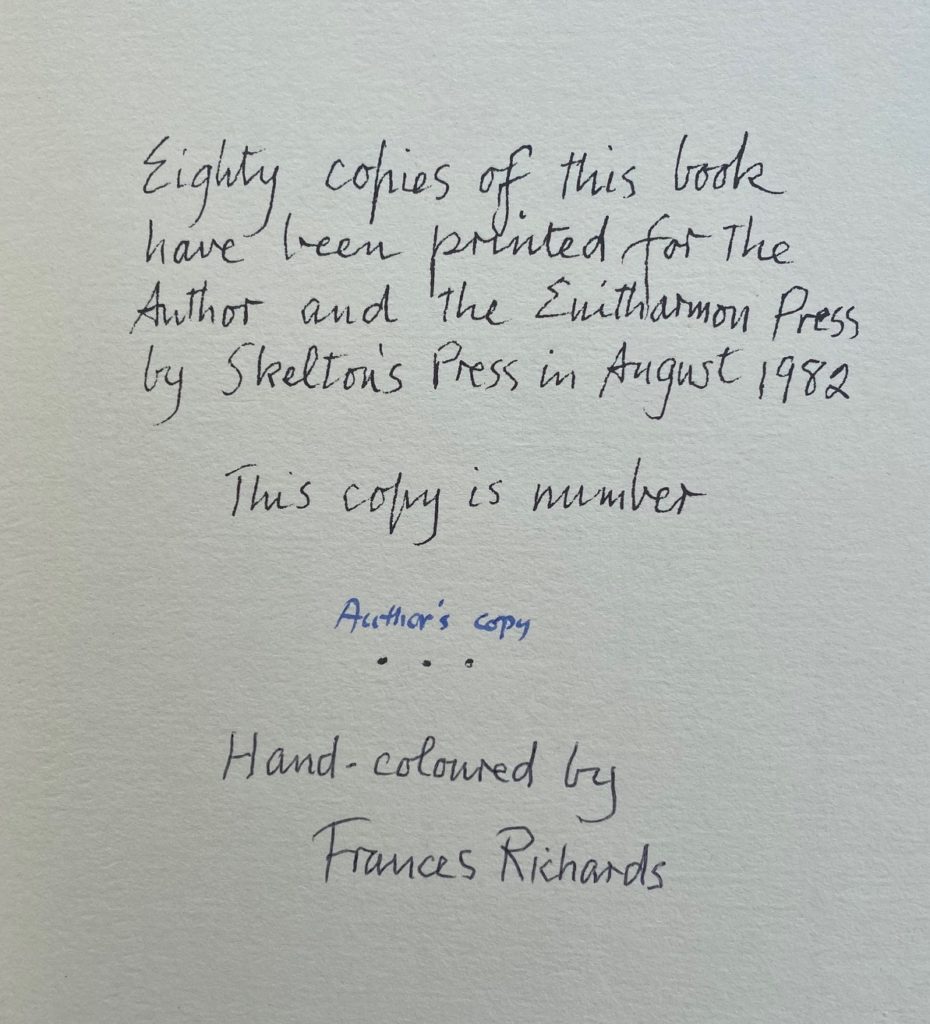 Eighty copies of this book
have been printed for The
Author and The Enitharmon Press
by Skelton's Press in August 1982
This copy is number
Author's copy
. . .
Hand-coloured by
Frances Richards